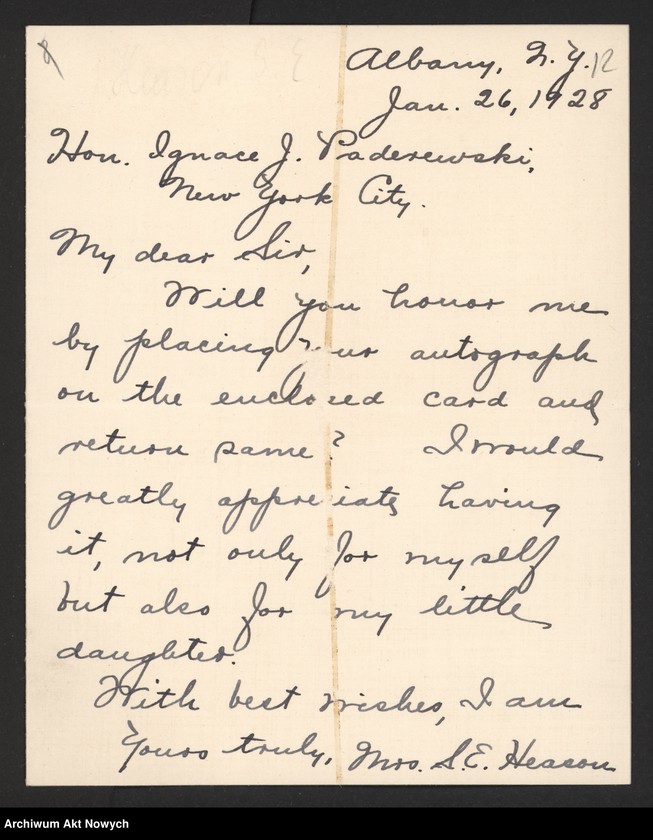 Albany, N.Y. 12
Jan. 26, 1928
Hon. Ignace J. Paderewski,
New York City.
My dear Sir,
Will you honor me
by placing your autograph
on the enclosed card and
return same? I would
greatly appreciate having
it, not only for myself
but also for my little
daughter.
With best wishes, I am
Yours truly, Mrs. S.E. Heason
Archiwum Akt Nowych